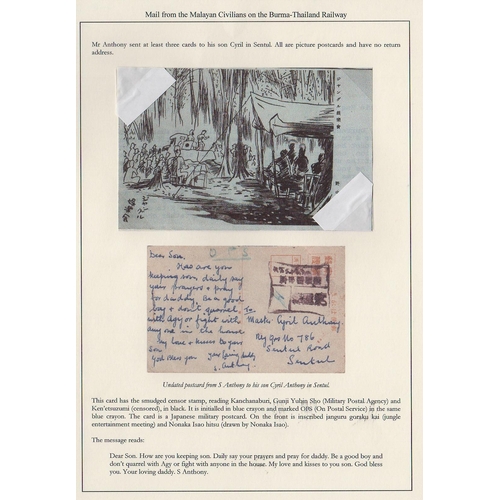 Mail from the Malayan Civilians on the Burma-Thailand Railway
Mr Anthony sent at least three cards to his son Cyril in Sentul. All are picture postcards and have no return
address.
Dear Son,
How are you
keeping son, daily say
your prayers & pray
for daddy. Be a good
boy & don't quarrel
with Agy or fight with
any one in the house
My love & kisses to you
son
God bless you
your loving daddy
S. Anthony.
O P S
To
Master Cyril Anthony,
Sentul Road
Sentul
Undated postcard from S Anthony to his son Cyril Anthony in Sentul.
This card has the smudged censor stamp, reading Kanchanaburi, Gunji Yubin Sho (Military Postal Agency) and
Ken'etsuzumi (censored), in black. It is initialled in blue crayon and marked OPS (On Postal Service) in the same
blue crayon. The card is a Japanese military postcard. On the front is inscribed janguru goraku kai (jungle
entertainment meeting) and Nonaka Isao hitsu (drawn by Nonaka Isao).
The message reads:
Dear Son. How are you keeping son. Daily say your prayers and pray for daddy. Be a good boy and
don't quarrel with Agy or fight with anyone in the house. My love and kisses to you son. God bless
you. Your loving daddy. S Anthony.